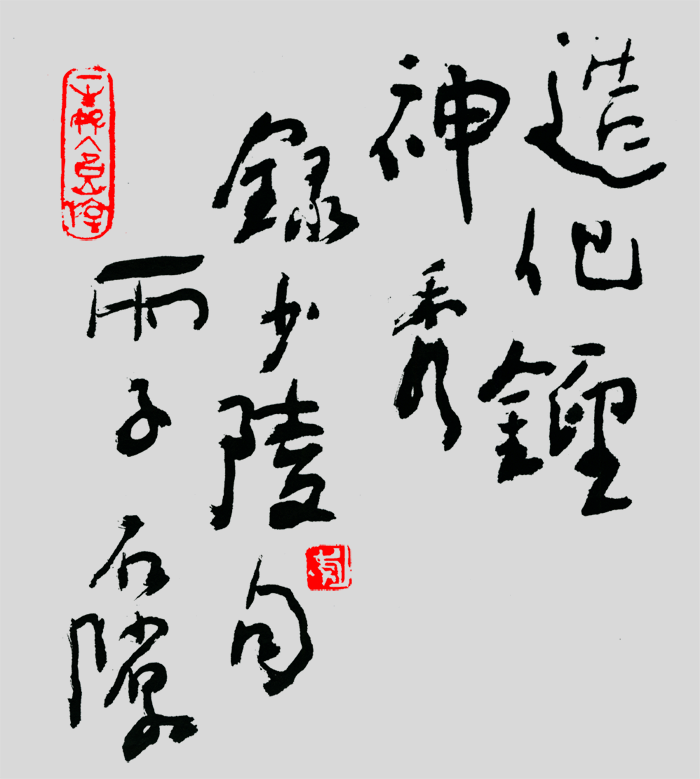 造化鍾
神秀
錄少陵句
雨子石隙